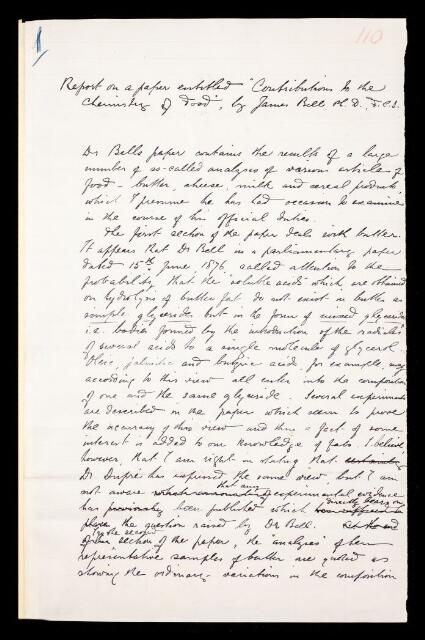 1
110
Report on a paper entitled "Contributions to the
Chemistry of Food", by James Bell Ph.D., F.C.S.
Dr Bells paper contains the results of a large
number of so-called analyses of various articles of
food - butter, cheese, milk and cereal products,
which I presume he has had occasion to examine
in the course of his official duties.
The first section of the paper deals with butter.
It appears that Dr Bell in a parliamentary paper
dated 15th June 1876, called attention to the
probability that the "soluble acids" which are obtained
on hydrolysis of butter fat, do not exist in butter as
simple glycerides but in the form of mixed glycerides
i.e. bodies formed by the introduction of the radicles
of several acids to a single molecule of glycerol.
Oleic, palmitic and butyric acids, for example, may
according to this view all enter into the composition
of one and the same glyceride. Several experiments
are described in the paper which seem to prove
the accuracy of this view and thus a fact of some
interest is added to our knowledge of fats. I believe
however that I am right in stating that
Dr Dupré has expressed the same view, but I am
not aware that any experimental evidence
has previously been published which directly bears on
the question raised by Dr Bell.
In the second
section of the paper, the "analyses" of
representative samples of butter are quoted as
showing the ordinary variations in the composition